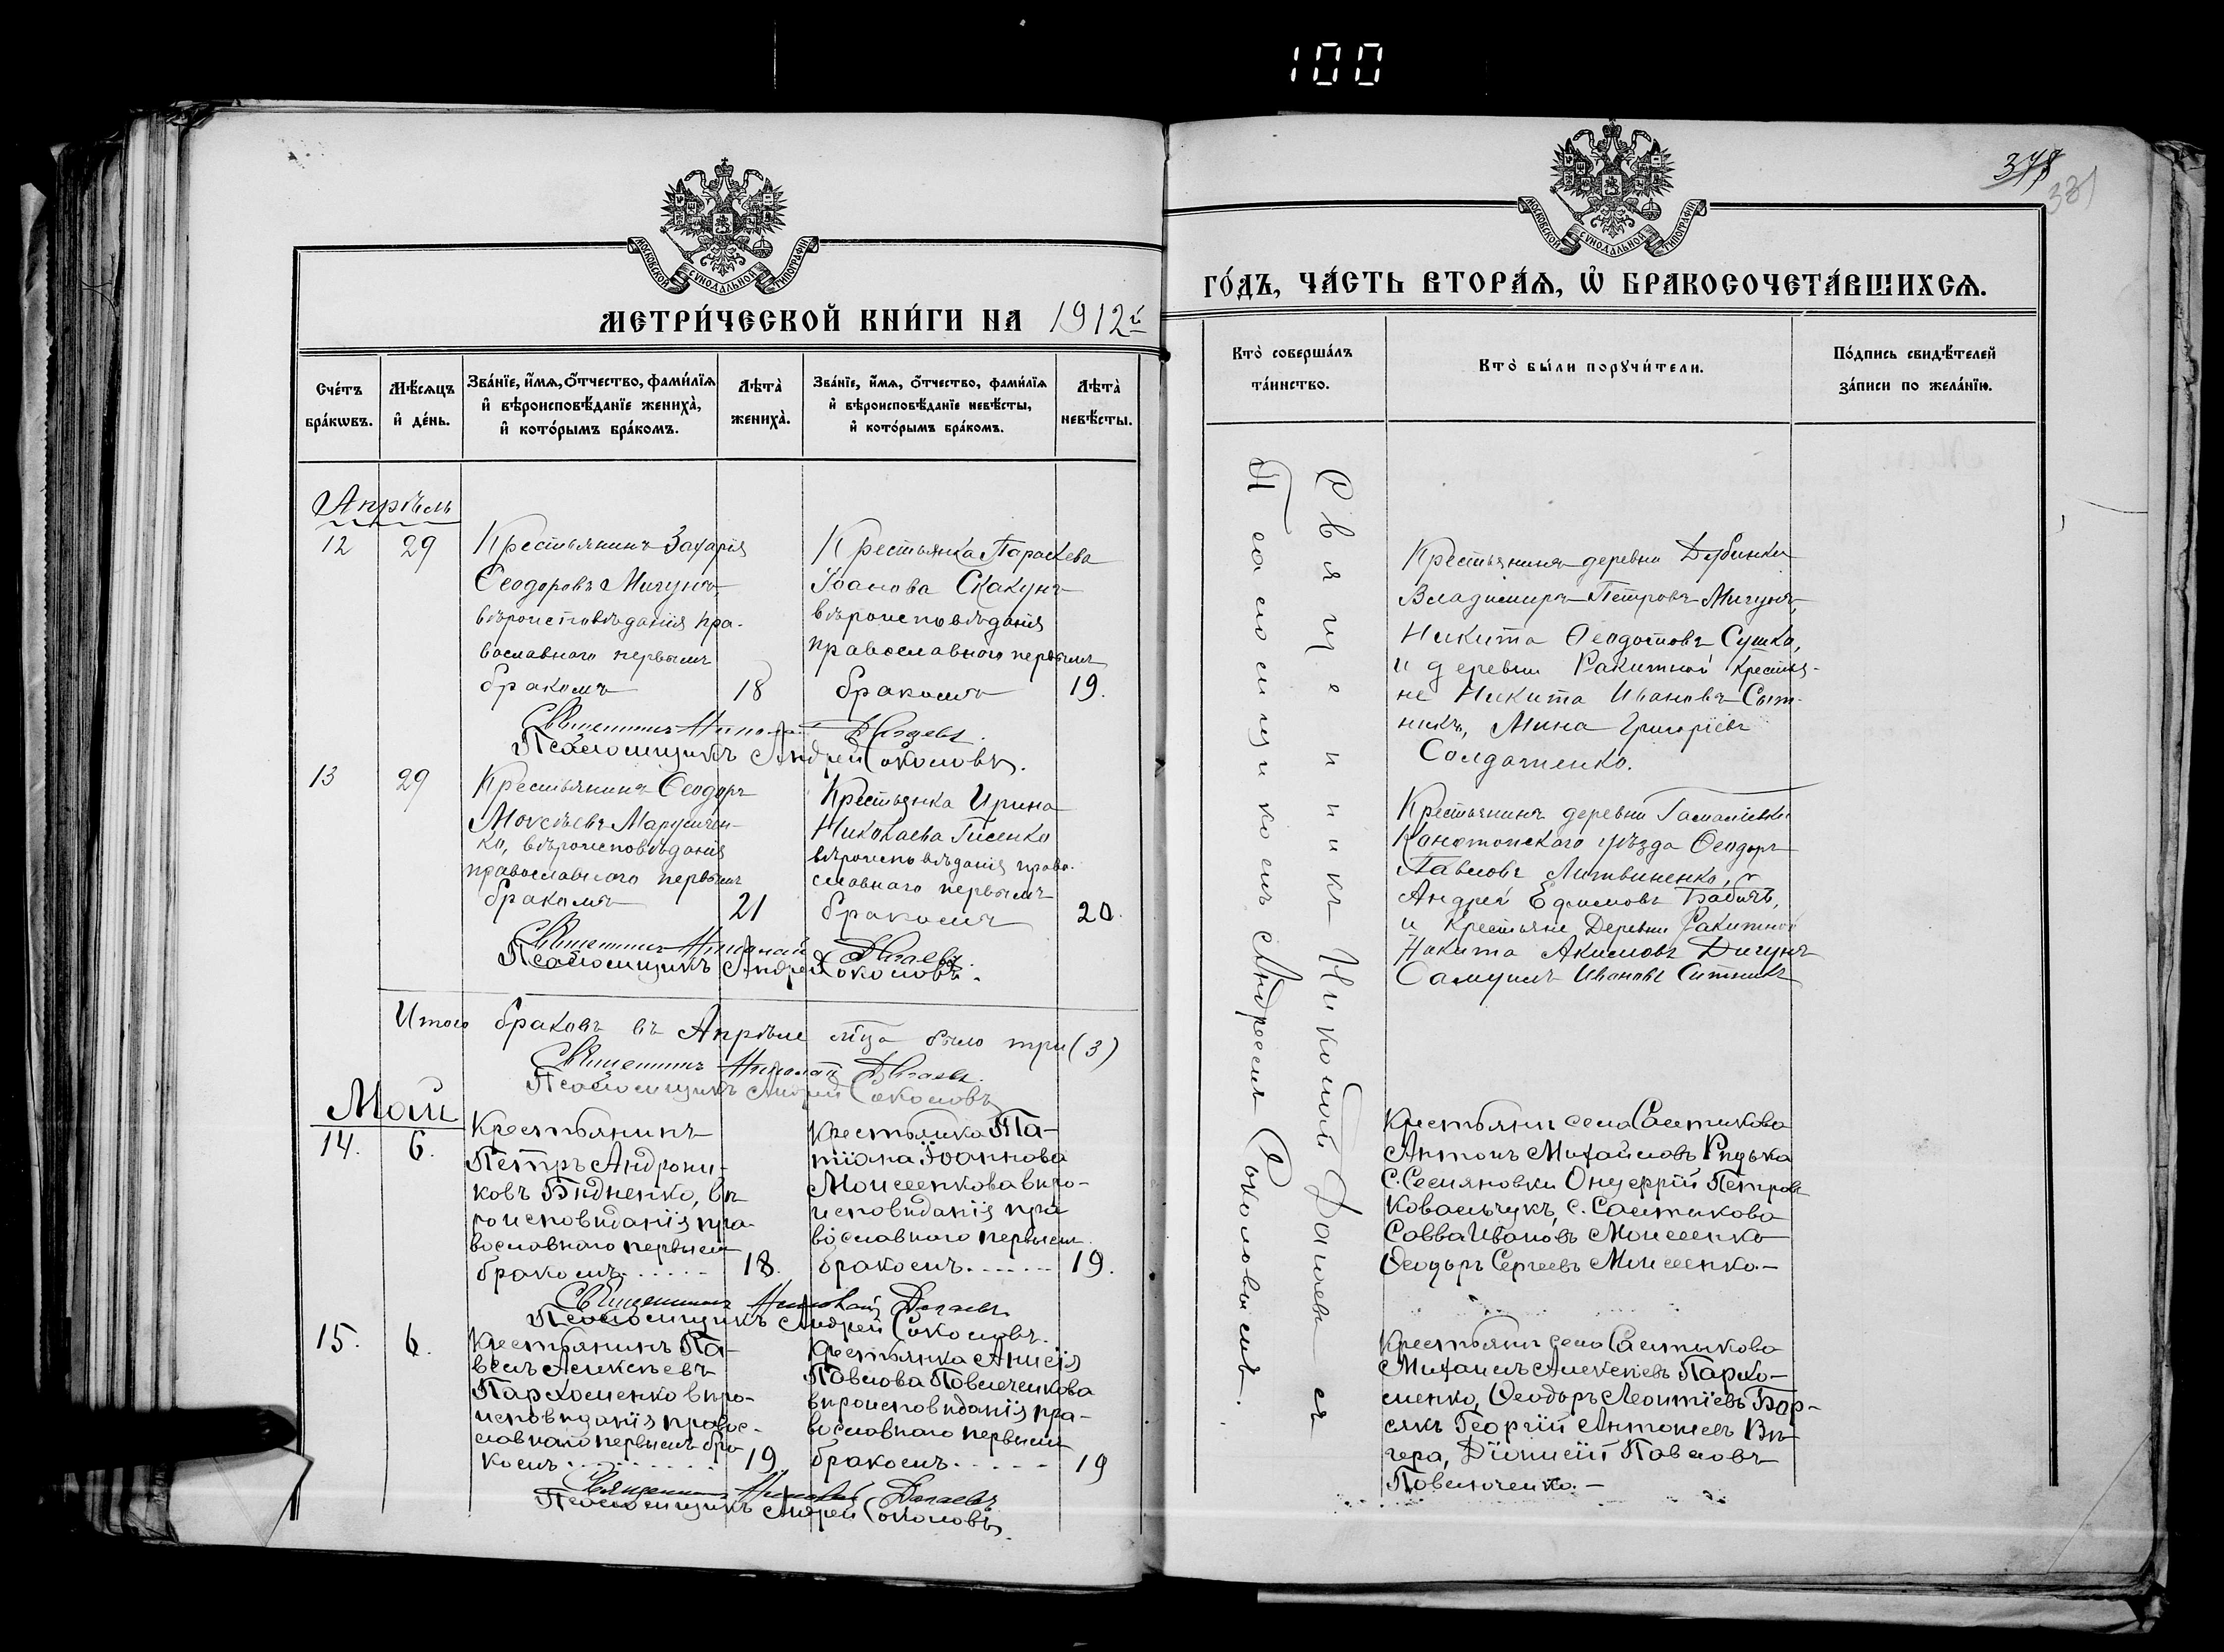 100
МОСКОВСКОЙ СУНОДАЛЬНОЙ ТИПОГРАФІИ
МЕТРИ́ЧЕСКОЙ КНИ́ГИ НА 1912й
Сче́тъ бра́кѡвъ.
Мѣ́сѧцъ и҆ де́нь.
Зва́нїе, и҆́мѧ, ѻ҆́тчество, фами́лїѧ
и҆ вѣроисповѣ́данїе жениха̀,
и҆ кото́рымъ бра́комъ.
Лѣта̀ жениха̀.
Зва́нїе, и҆́мѧ, ѻ҆́тчество, фами́лїѧ
и҆ вѣроисповѣ́данїе невѣ́сты,
и҆ кото́рымъ бра́комъ.
Лѣта̀ невѣ́сты.
Апрѣль
12
29
Крестьянинъ Захарія
Ѳеодоровъ Мигунъ,
вѣроисповѣданія пра-
вославнаго первымъ
бракомъ
18
Крестьянка Параскева
Іоанова Скакунъ
вѣроисповѣданія
православнаго первымъ
бракомъ
19.
Священникъ Николай
Псаломщикъ Андрей Соколовъ.
13
29
Крестьянинъ Ѳеодоръ
Моисѣевъ Марусичен-
ко, вѣроисповѣданія
православнаго первымъ
бракомъ
21
Крестьянка Ирина
Николаева Гисенко
вѣроисповѣданія право-
славнаго первымъ
бракомъ
20.
Священникъ Николай
Псаломщикъ Андрей Соколовъ.
Итого браковъ въ Апрѣле м-ца было три (3)
Священникъ Николай
Псаломщикъ Андрей Соколовъ
Май
14.
6.
Крестьянинъ
Петръ Андрони-
ковъ Бидненко, вѣ
роисповѣданія пра-
вославнаго первымъ
бракомъ
18.
Крестьянка Та-
тіана Іоаннова
Моисеенкова вѣро-
исповѣданія пра
вославнаго первымъ
бракомъ
19.
Священникъ Николай
Псаломщикъ Андрей Соколовъ.
15.
6.
Крестьянинъ Па-
велъ Алексѣевъ
Пархоменко вѣро-
исповѣданія правос-
лавнаго первымъ бра
комъ
19
Крестьянка Анисія
Павлова Павлеченкова
вѣроисповѣданія пра-
вославнаго первымъ
бракомъ
19
Священникъ Николай
Псаломщикъ Андрей Соколовъ.
378
331
МОСКОВСКОЙ СУНОДАЛЬНОЙ ТИПОГРАФІИ
ГО́ДЪ, ЧА́СТЬ ВТОРА́Ѧ, Ѽ БРАКОСОЧЕТА́ВШИХСѦ.
Кто̀ соверша́лъ
та́инство.
Кто̀ бы́ли порꙋчи́тели.
По́дпись свидѣ́телей
за́писи по жела́нїю.
Священникъ Николай
Псаломщикомъ Андреемъ Соколовымъ.
Крестьянинъ деревни Дубинки
Владимиръ Петровъ Мигунъ,
Никита Ѳеодотовъ Сушко,
и деревни Ракитной крестья-
не Никита Ивановъ Сит-
никъ, Мина Григоріевъ
Солдатенко.
Крестьянинъ деревни Гамаліевки
Конотопскаго уѣзда Ѳеодоръ
Павловъ Литвиненко,
Андрей Ефимовъ Бабичъ,
и крестьяне деревни Ракитной
Никита Акимовъ Дигунъ
Самуилъ Ивановъ Ситникъ
Крестьяни села
Антонъ Михайловъ Рудька
с. Сесияновки Онуфрій Петровъ
Ковальчукъ, с.
Савва Ивановъ Моисеенко
Ѳеодоръ Сергеевъ Моисеенко.-
Крестьяни села
Михаилъ Алексѣевъ Пархо-
менко, Ѳеодоръ Леонтіевъ Бор-
сякъ Георгій Антоніевъ Ви-
гера, Діонисій Павловъ
Павлюченко.-